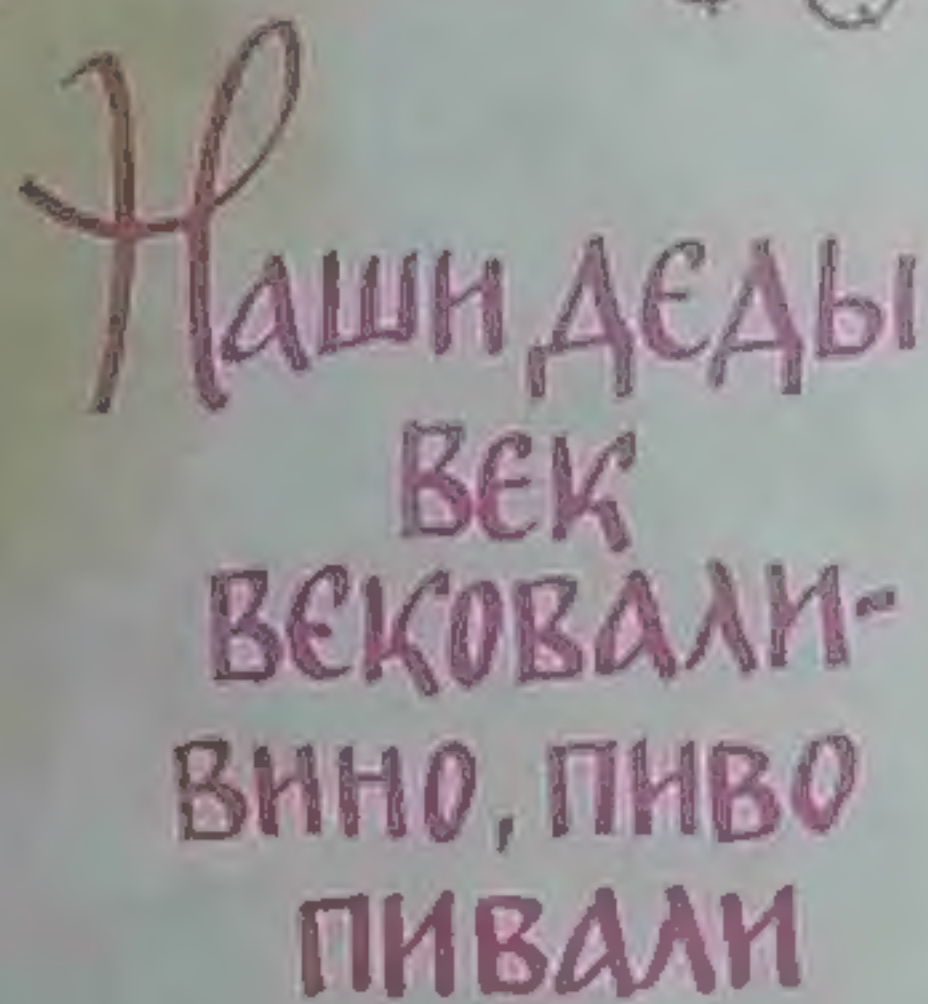 Наши деды
век
вековали-
вино, пиво
пивали